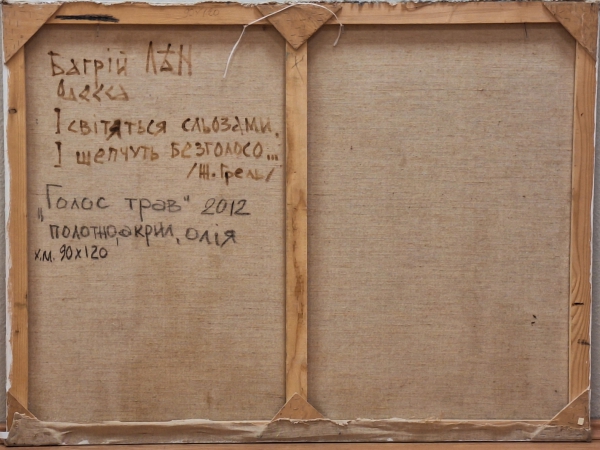 Багрій ЛѣН
Одесса
І світяться сльозами,
І шепчуть безголосо...
/Ж. Грель/
„Голос трав“ 2012
полотно, акрил, олія
х.м. 90х120